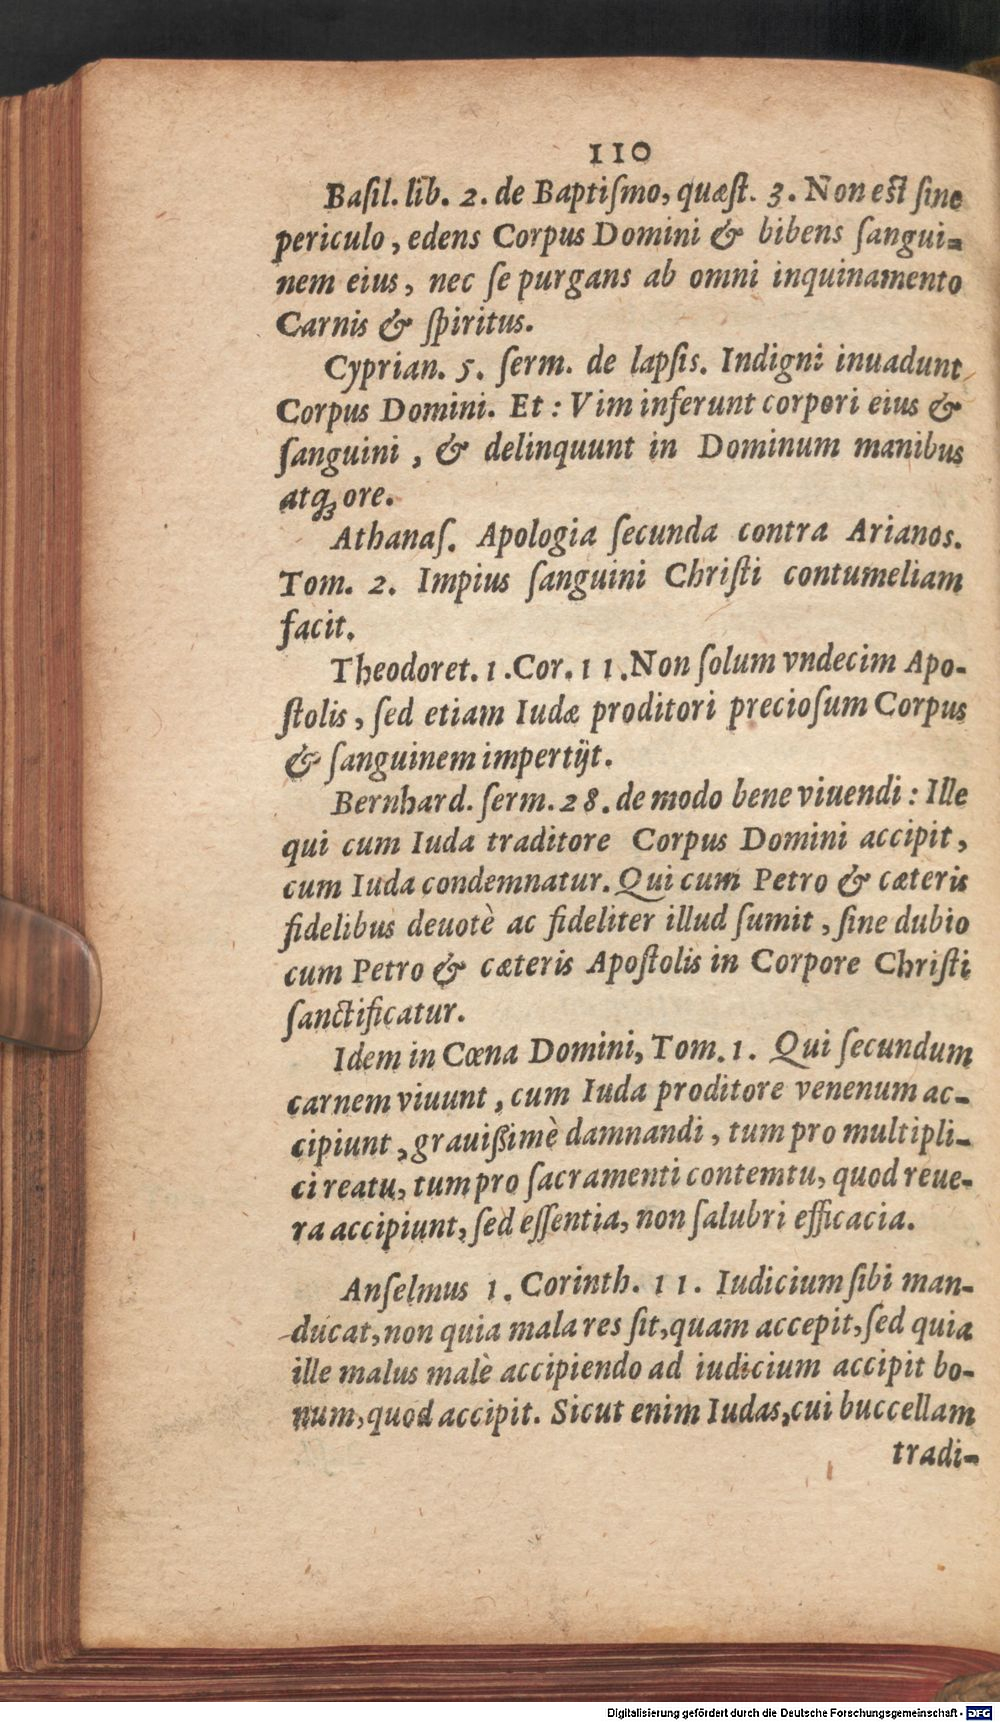 110
Baſil. lib. 2. de Baptiſmo, quæſt. 3. Non eſt ſine
periculo, edens Corpus Domini & bibens ſangui-
nem eius, nec ſe purgans ab omni inquinamento
Carnis & ſpiritus.
Cyprian. 5. ſerm. de lapſis. Indigni inuadunt
Corpus Domini. Et : Vim inferunt corpori eius &
ſanguini, & delinquunt in Dominum manibus
atqꝫ ore.
Athanaſ. Apologia ſecunda contra Arianos.
Tom. 2. Impius ſanguini Chriſti contumeliam
facit.
Theodoret. 1. Cor. 11. Non ſolum vndecim Apo-
ſtolis, ſed etiam Iudæ proditori precioſum Corpus
& ſanguinem impertijt.
Bernhard. ſerm. 28. de modo bene viuendi : Ille
qui cum Iuda traditore Corpus Domini accipit,
cum Iuda condemnatur. Qui cum Petro & cæteris
fidelibus deuotè ac fideliter illud ſumit, ſine dubio
cum Petro & cæteris Apoſtolis in Corpore Chriſti
ſanctificatur.
Idem in Cœna Domini, Tom. 1. Qui ſecundum
carnem viuunt, cum Iuda proditore venenum ac-
cipiunt, grauißimè damnandi, tum pro multipli-
ci reatu, tum pro ſacramenti contemtu, quod reue-
ra accipiunt, ſed eſſentia, non ſalubri efficacia.
Anſelmus 1. Corinth. 11. Iudicium ſibi man-
ducat, non quia mala res ſit, quam accepit, ſed quia
ille malus malè accipiendo ad iudicium accipit bo-
num, quod accipit. Sicut enim Iudas, cui buccellam
tradi-
Digitalisierung gefördert durch die Deutsche Forschungsgemeinschaft - DFG